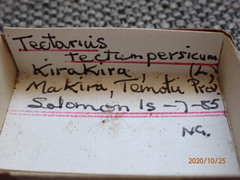 Tectarius
tectumpersicum
Kirakira, (L)
Makira, Temotu Prov.
Solomon Is -7-85
NG.
2020/10/25